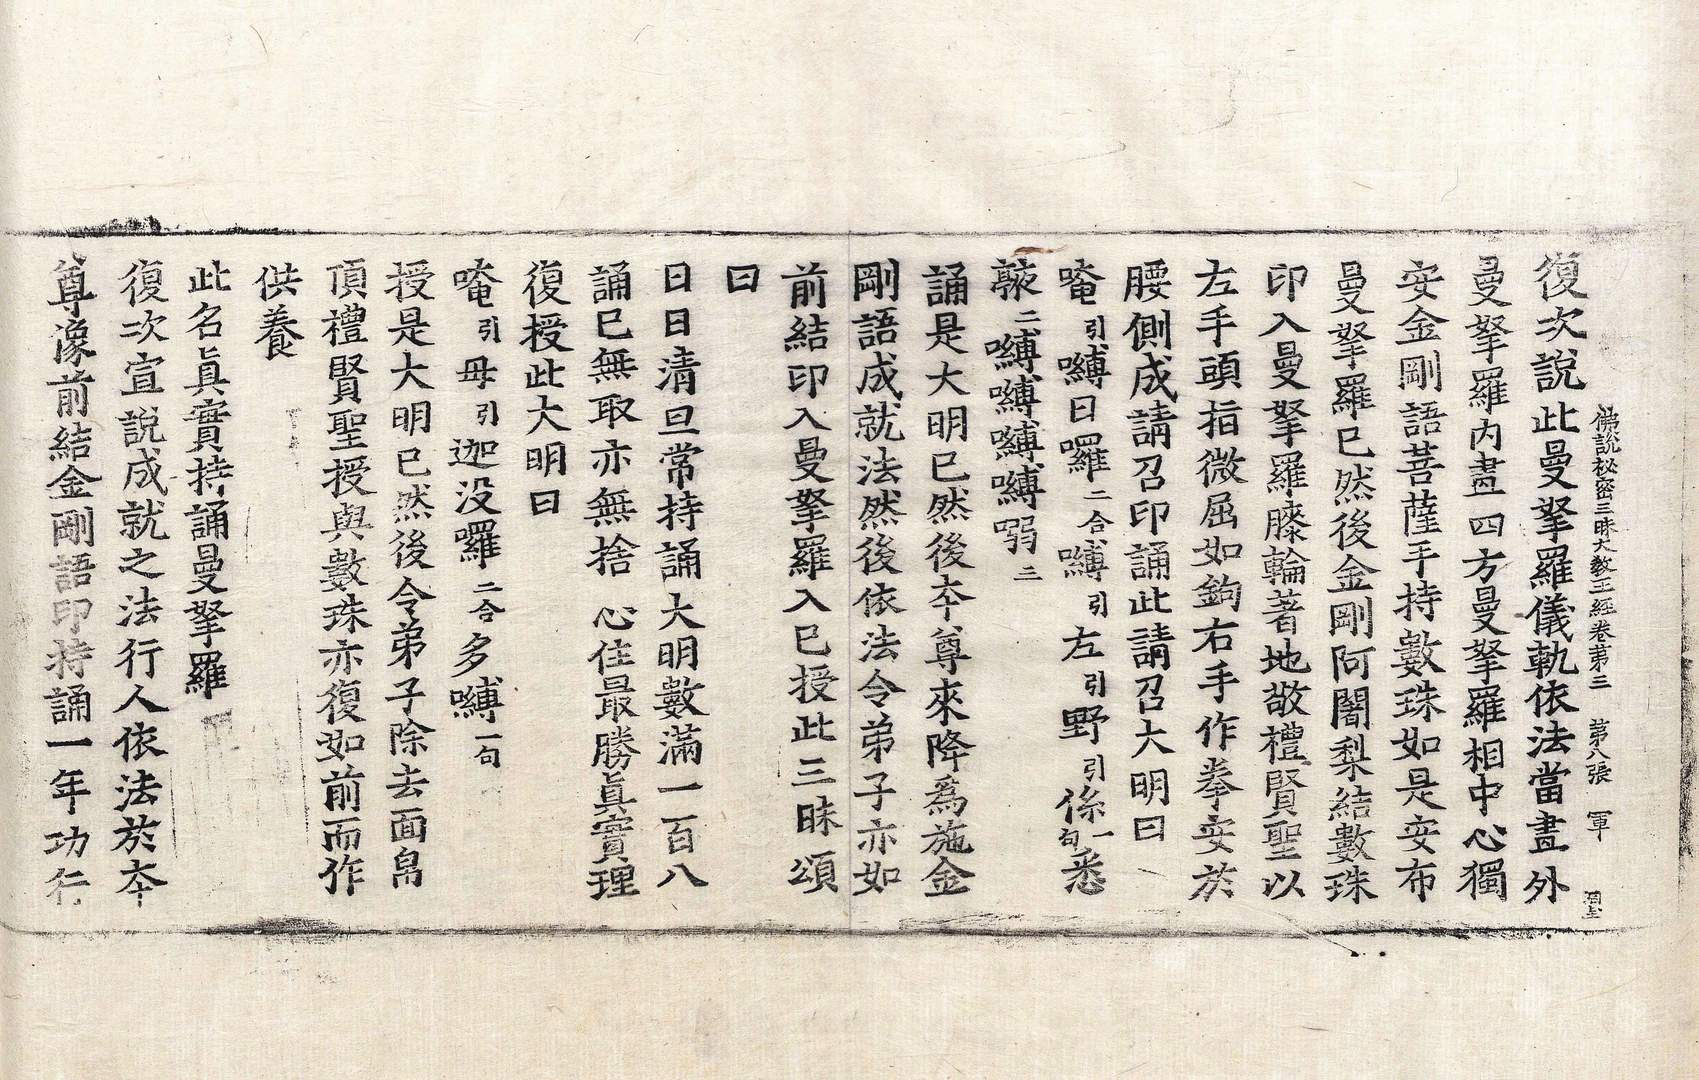 佛說秘密三昧大敎王經卷第三　第八張　軍
復次說此曼拏羅儀軌依法當畫外
曼拏羅內畫四方曼拏羅相中心獨
安金剛語菩薩手持數珠如是安布
曼拏羅已然後金剛阿闍梨結數珠
印入曼拏羅膝輪著地敬禮賢聖以
左手頭指微屈如鉤右手作拳安於
腰側成請召印誦此請召大明曰
唵引嚩日囉二合嚩引左引野引係一句悉
𪐴二嚩嚩嚩嚩㖸三
誦是大明已然後本尊來降爲施金
剛語成就法然後依法令弟子亦如
前結印入曼拏羅入已授此三昧頌
曰
日日清旦常持誦大明數滿一百八
誦已無取亦無捨　心住最勝眞實理
復授此大明曰
唵引毋引迦没囉二合多嚩一句
授是大明已然後令弟子除去面帛
頂禮賢聖授與數珠亦復如前而作
供養
此名眞實持誦曼拏羅
復次宣說成就之法行人依法於本
尊像前結金剛語印持誦一年功行